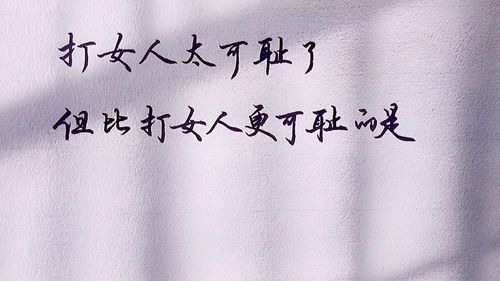 打女人太可耻了
但比打女人更可耻的是